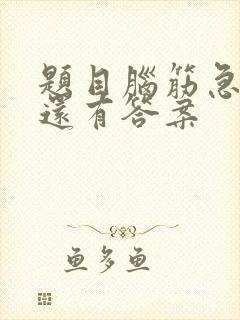 題目腦筋急
還有答案
魚多魚